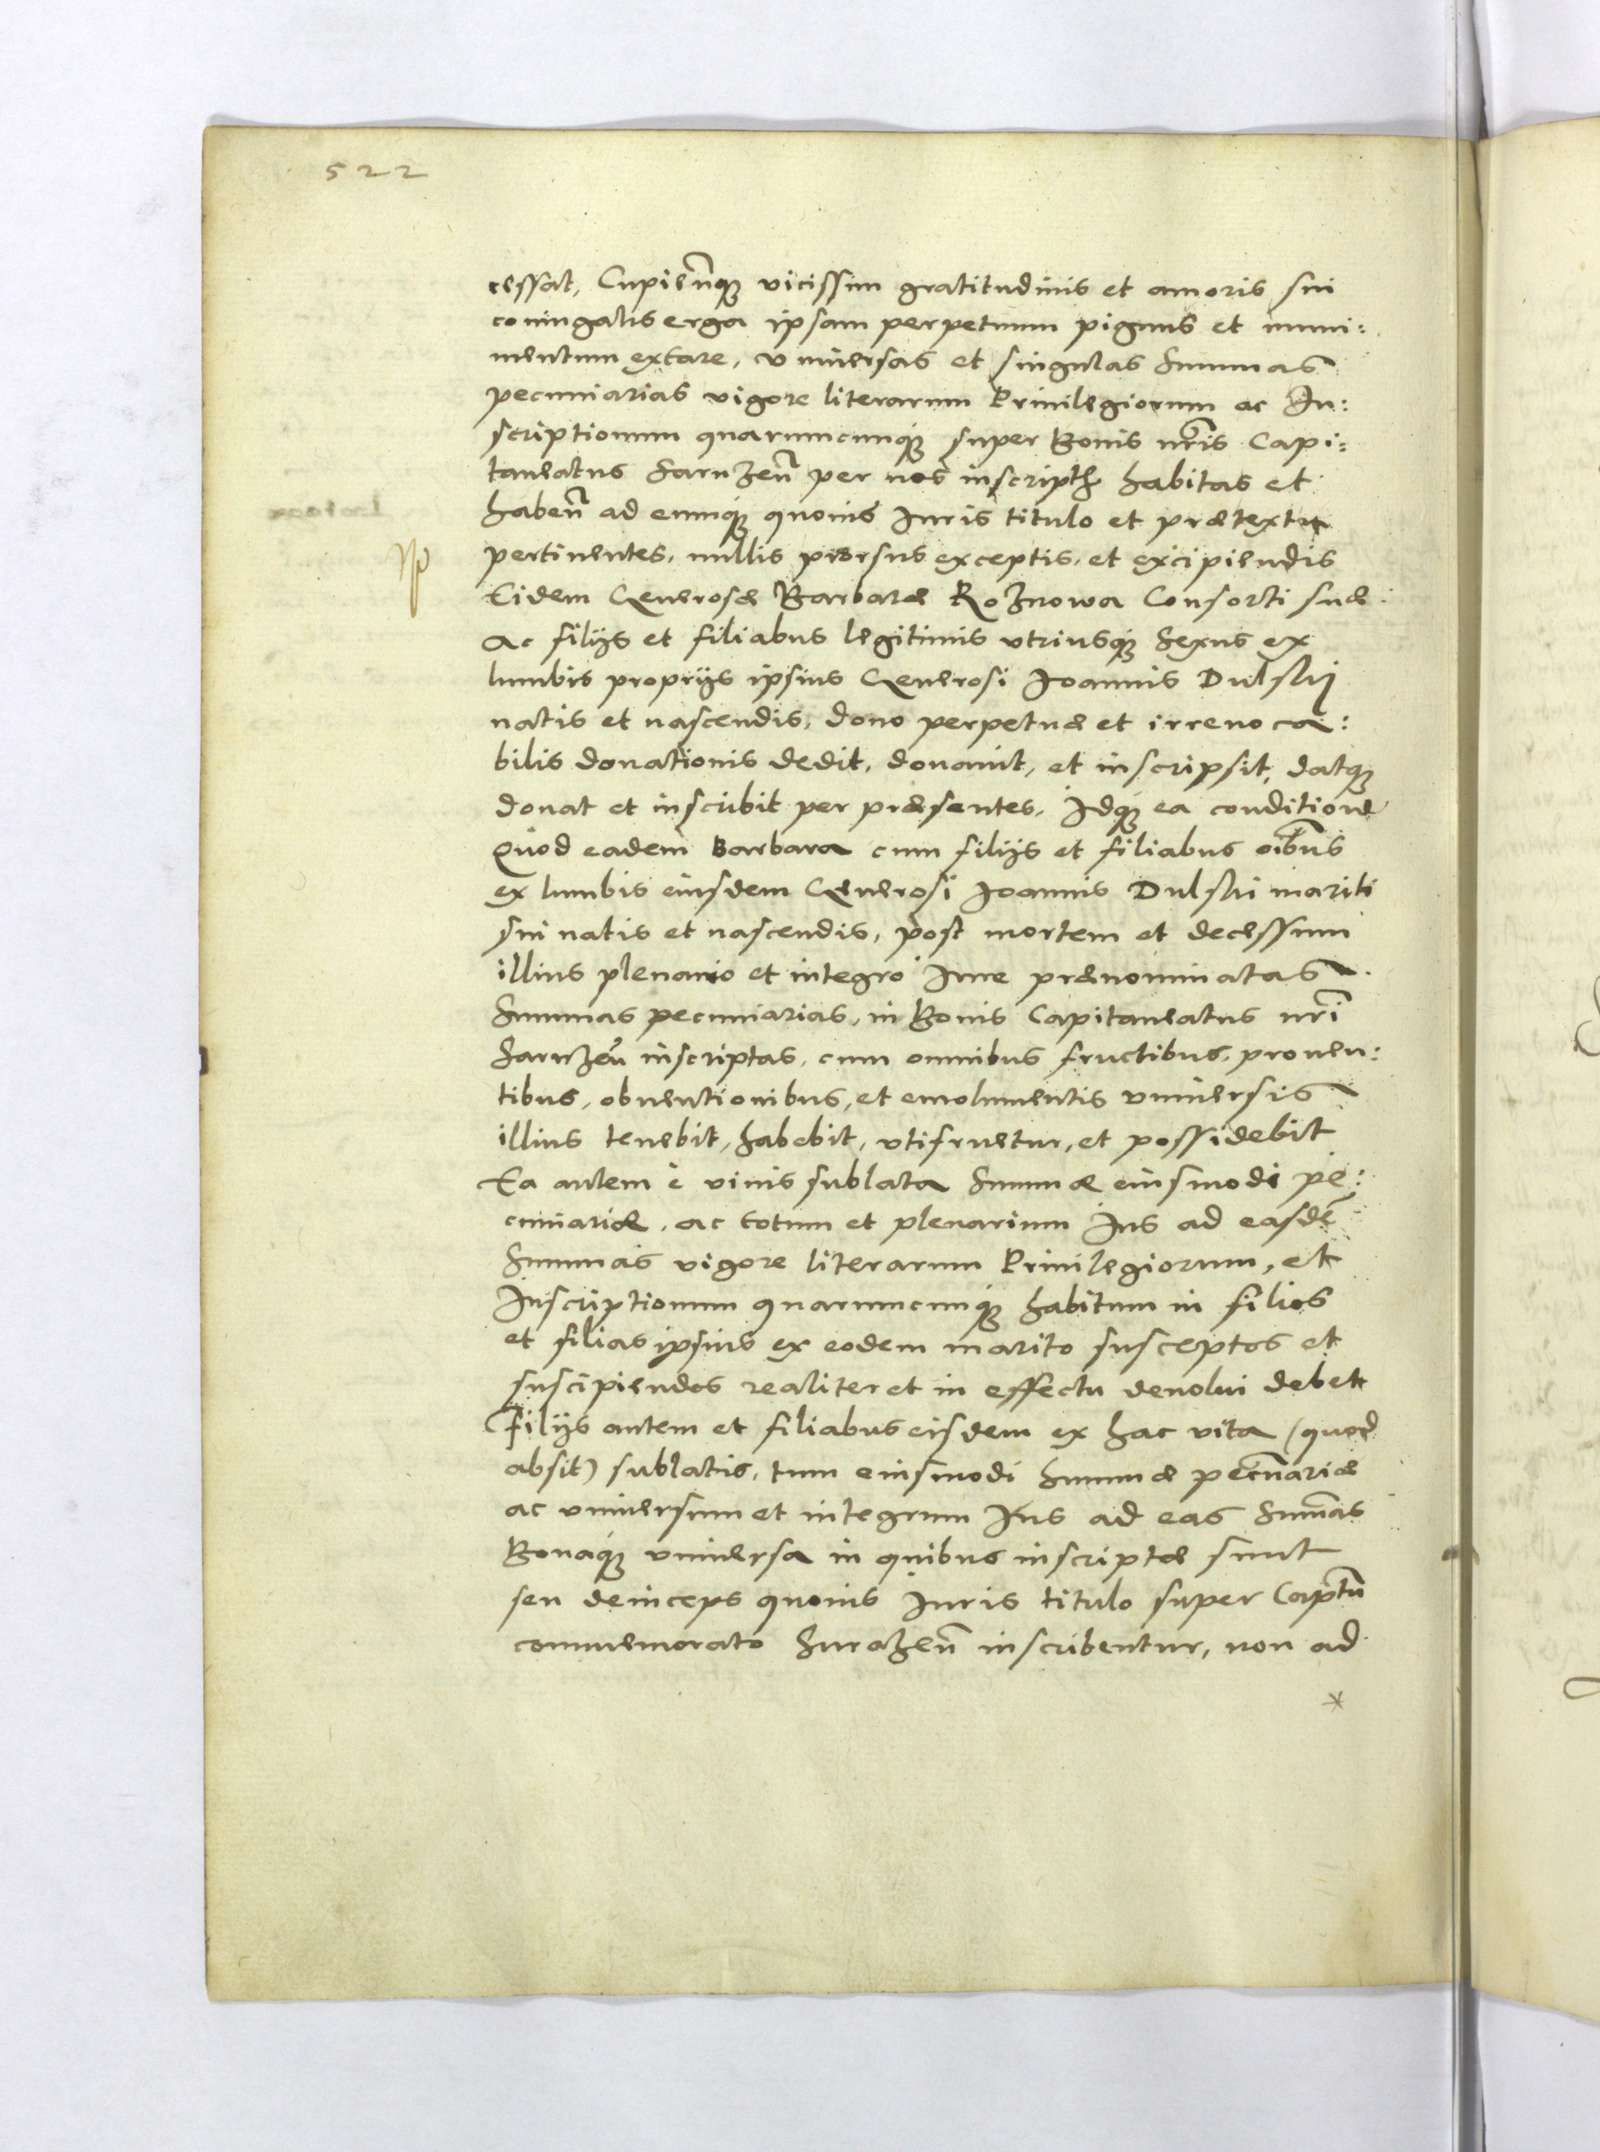 522
cessat, Cupien̄q₃ vicissim gratitudinis et amoris sui
coniugalis erga ipsam perpetuum pignus et muni:
mentum extare, vniuersas et singulas Summas
pecuniarias vigore literarum Priuilegiorum ac In:
scriptionum quarumcunq₃ super Bonis nr̄is Capi:
taneatus Sarnzen̄ per nos inscript habitas et
haben̄ ad eumq₃ quouis Iuris titulo et prætextu
pertinentes, nullis prorsus exceptis, et excipiendis
Eidem Generosæ Barbaræ Roznowa Consorti suæ
Ac filijs et filiabus legitimis vtriusq₃ sexus ex
lumbis proprijs ipsius Generosi Joannis Dulskij
natis et nascendis, dono perpetuæ et irreuoca:
bilis donationis dedit, donauit, et inscripsit, datq₃
donat et inscribit per præsentes, Idq₃ ea conditione
Quod eadem Barbara cum filijs et filiabus oībus
ex lumbis eiusdem Generosi Joannis Dulski mariti
sui natis et nascendis, post mortem et decessum
illius plenario et integro Iure prænominatas
Summas pecuniarias, in Bonis Capitaneatus nr̄i
Sarnzen̄ inscriptas, cum omnibus fructibus, prouen:
tibus, obuentionibus, et emolumentis vniuersis
illius tenebit, habebit, vtifruetur, et possidebit
Ea autem è viuis sublata Summæ eiusmodi pe:
cuniariæ, ac totum et plenarium Ius ad easdē
Summas vigore literarum Priuilegiorum, et
Inscriptionum quarumcunq₃ habitum in filios
et filias ipsius ex eodem marito susceptos et
suscipiendos realiter et in effectu deuolui debet
Filijs autem et filiabus eisdem ex hac vita (quod
absit) sublatis, tum eiusmodi Summæ pecūnariæ
ac vniuersum et integrum Ius ad eas Summ̄as
Bonaq₃ vniuersa in quibus inscriptæ sunt
seu deinceps quouis Iuris titulo super Captū
commemorato Surazen̄ inscribentur, non ad